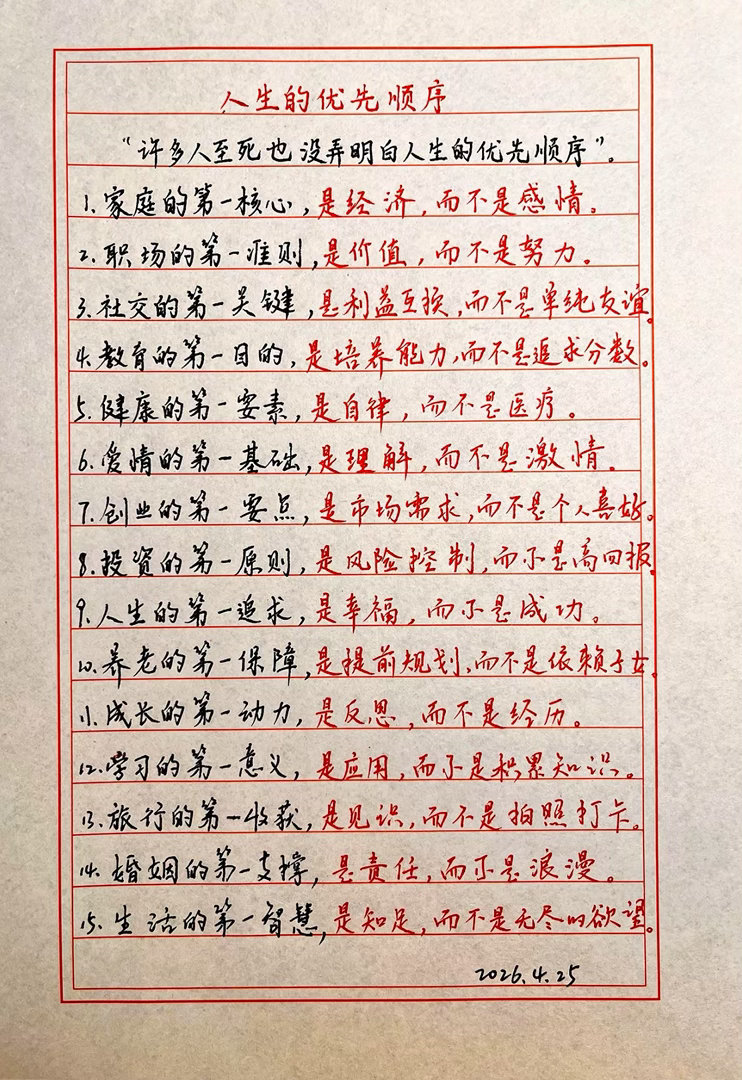 人生的优先顺序
“许多人至死也没弄明白人生的优先顺序”。
1.家庭的第一核心,是经济,而不是感情。
2.职场的第一准则,是价值,而不是努力。
3.社交的第一关键,是利益互换,而不是单纯友谊。
4.教育的第一目的,是培养能力,而不是追求分数。
5.健康的第一要素,是自律,而不是医疗。
6.爱情的第一基础,是理解,而不是激情。
7.创业的第一要点,是市场需求,而不是个人喜好。
8.投资的第一原则,是风险控制,而不是高回报。
9.人生的第一追求,是幸福,而不是成功。
10.养老的第一保障,是提前规划,而不是依赖子女。
11.成长的第一动力,是反思,而不是经历。
12.学习的第一意义,是应用,而不是积累知识。
13.旅行的第一收获,是见识,而不是拍照打卡。
14.婚姻的第一支撑,是责任,而不是浪漫。
15.生活的第一智慧,是知足,而不是无尽的欲望。
2026.4.25